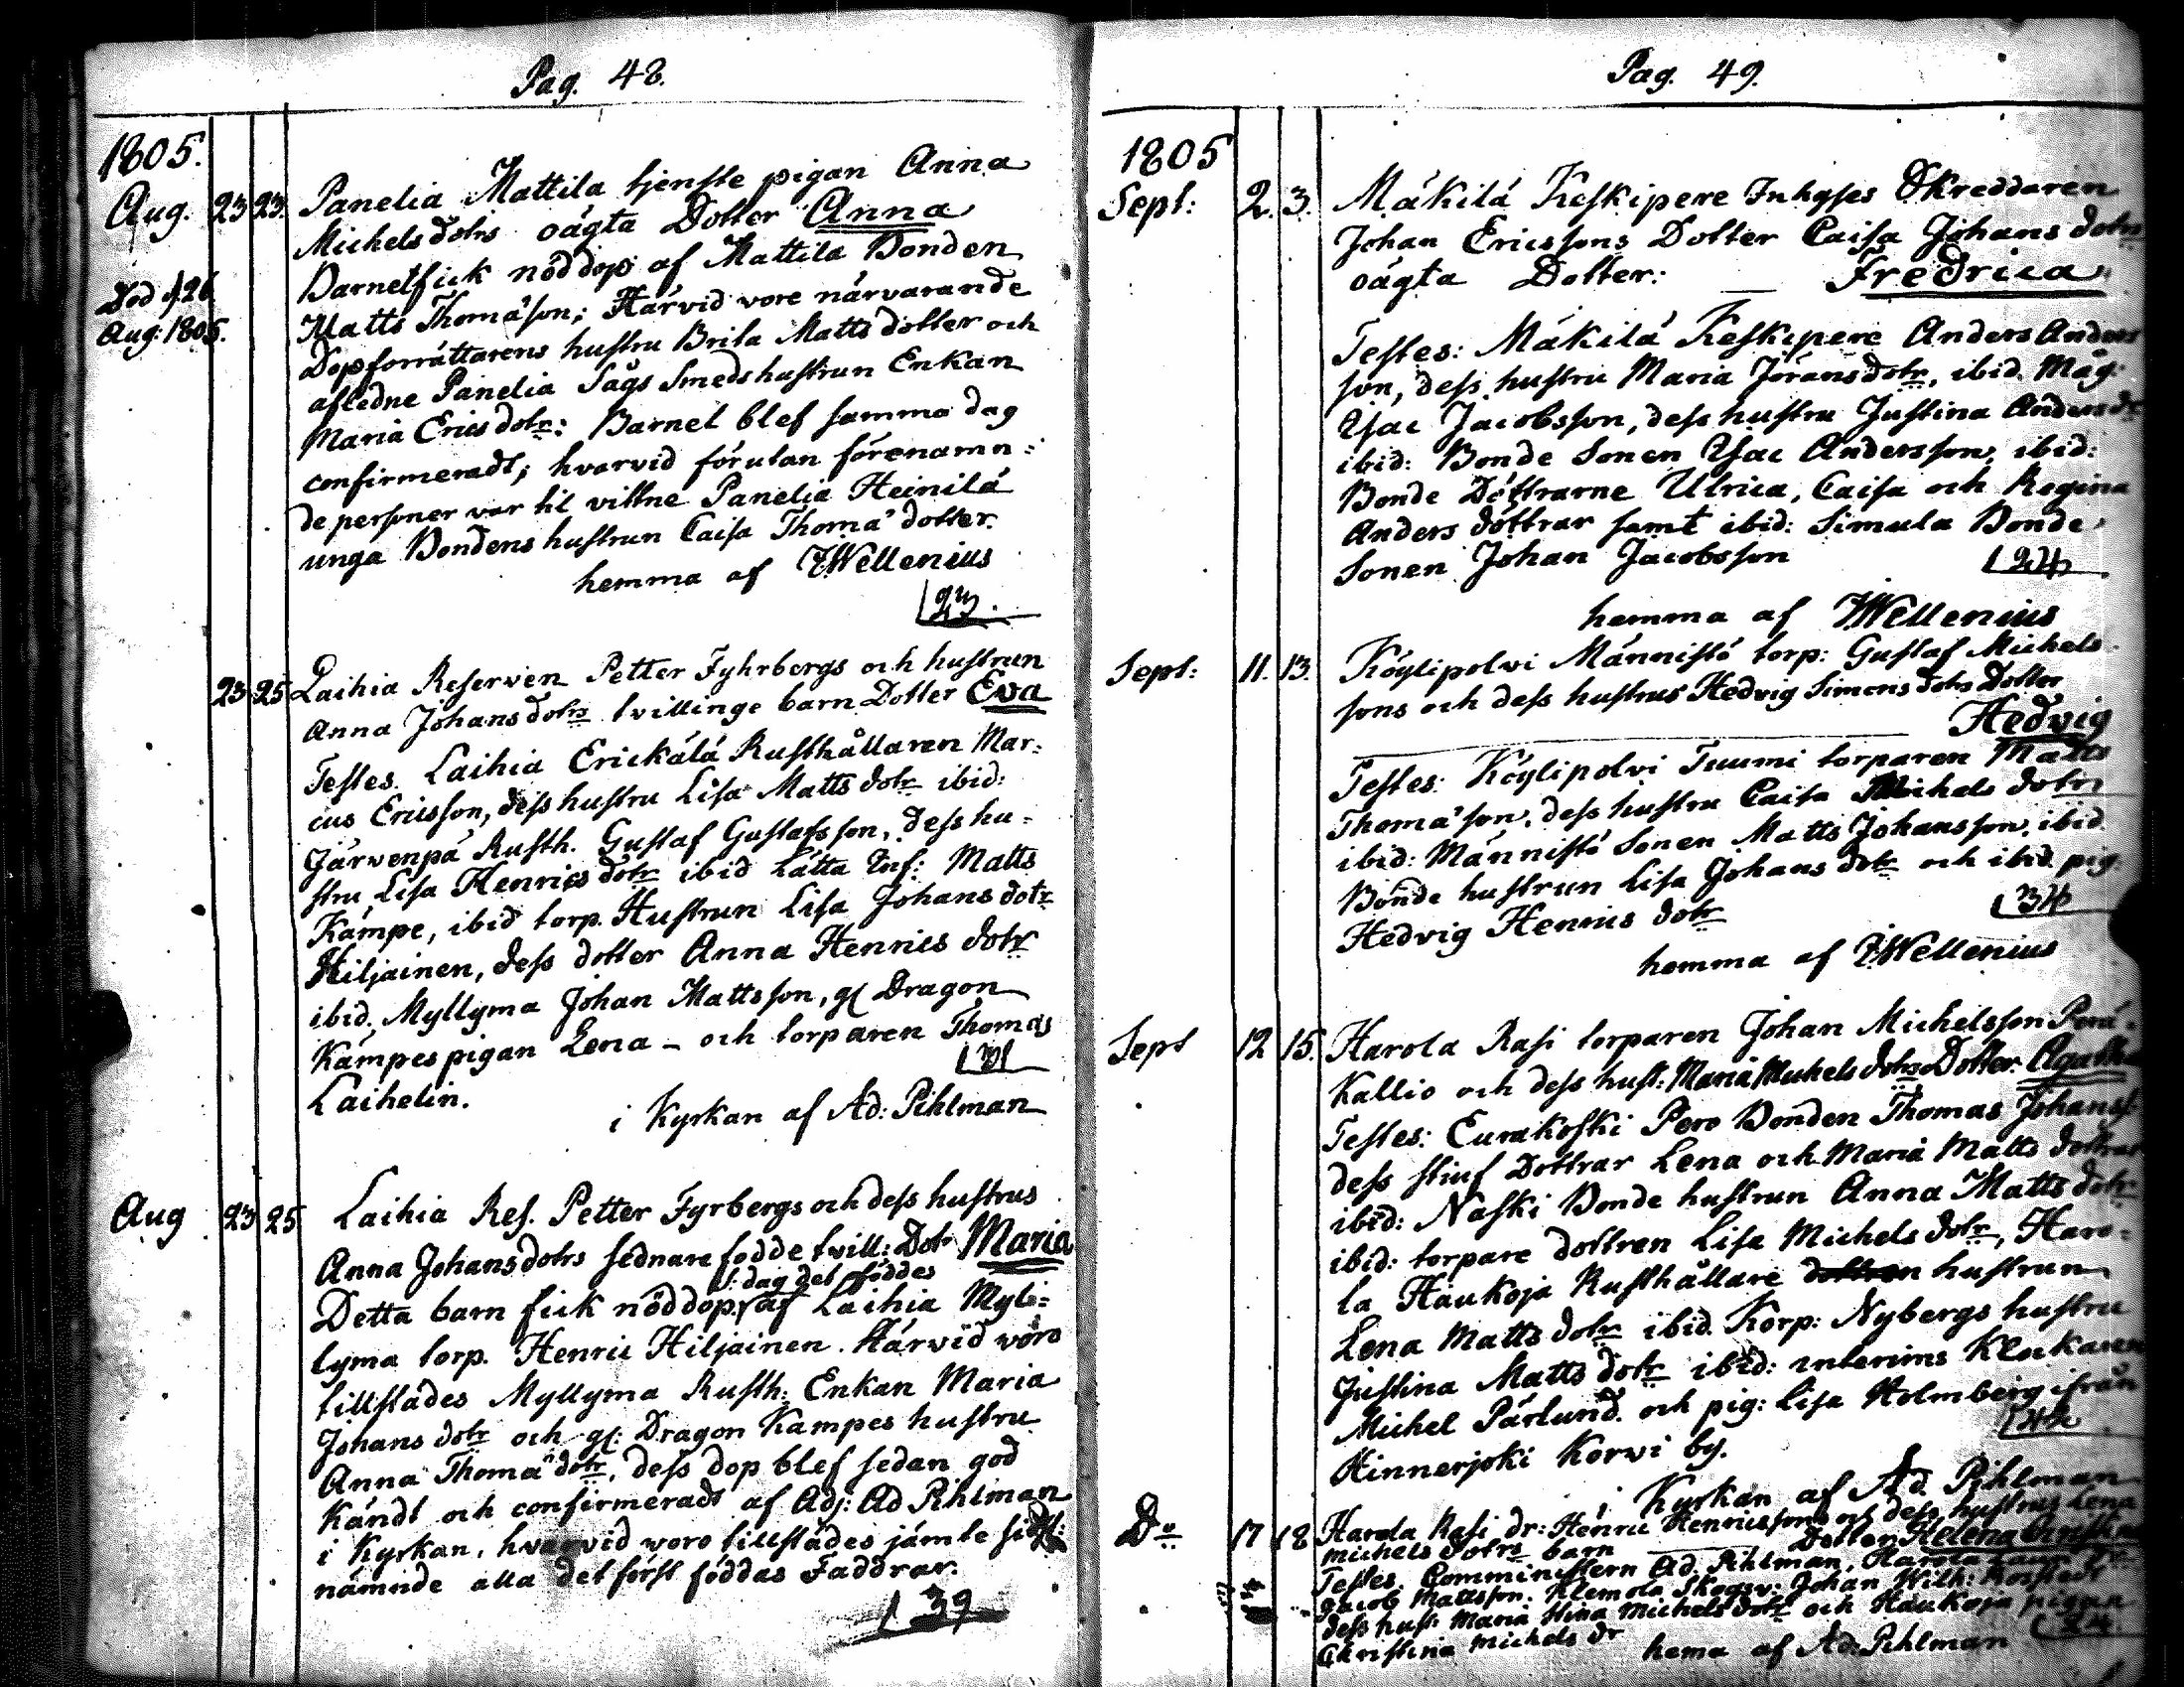 Pag. 48.
1805.
Aug. 23 23. Panelia Mattila tjenste pigan Anna
Michelsdotrs oägta Dotter Anna
Barnet fick nöddop af Mattila Bonden
Död d. 26
Aug: 1805.
Matts Thomæson; Härvid vore närvarande
Dopförrättarens hustru Brita Matts dotter och
afledne Panelia Sågs Smeds hustrun Enkan
Maria Erics dotr: Barnet blef samma dag
confirmeradt; hvarvid förutan förenamn:
de personer var til vittne Panelia Heinilä
unga Bondens hustrun Caisa Thomæ dotter.
hemma af JWellenius
23.
23 25 Laihia Reserven Petter Fyhrbergs och hustrun
Anna Johansdotrs tvillinge barn Dotter Eva
Testes. Laihia Erickälä Rusthållaren Mar:
cus Ericsson, dess hustru Lisa Matts dotr ibid:
Järvenpä Rusth. Gustaf Gustafsson, dess hu:
stru Lisa Henrics dotr ibid Lätta Inf: Matts
Kämpe, ibid torp. Hustrun Lisa Johans dotr
Hiljainen, dess dotter Anna Henrics dotr
ibid. Myllyma Johan Mattsson, gl Dragon
Kämpes pigan Lena - och torparen Thomas
Laihelin.
i Kyrkan af Ad: Pihlman
Aug 23 25 Laihia Res. Petter Fyrbergs och dess hustrus
Anna Johansdotrs sednare födde tvill: Dotr Maria
s: dag det föddes
Detta barn fick nöddop, af Laihia Myl:
lyma torp. Henric Hiljainen. Härvid voro
tillstädes Myllyma Rusth: Enkan Maria
Johans dotr och gl: Dragon Kämpes hustru
Anna Thomæ dotr, dess dop blef sedan god
kändt och confirmeradt af Adj: Ad Pihlman
i Kyrkan, hvarvid voro tillstädes jämte
nämnde alla det först föddas Faddrar.
39
Pag. 49.
1805
Sept: 2. 3. Mäkilä Keskipere Inhyses Skreddaren
Johan Ericssons Dotter Caisa Johans dotrs
oägta Dotter: Fredrica
Testes: Mäkilä Keskipere Anders Anders
son, dess hustru Maria Jöransdotr, ibid. Måg:
Ysac Jacobsson, dess hustru Justina Anders dr
ibid: Bonde Sonen Ysac Andersson, ibid:
Bonde Döttrarne Ulrica, Caisa och Regina
Anders döttrar samt ibid: Simula Bonde
Sonen Johan Jacobsson
24
hemma af JWellenius
Sept: 11. 13. Köylipolvi Männistö torp: Gustaf Michels
sons och dess hustrus Hedvig Simons dotrs Dotter
Hedvig
Testes: Köylipolvi Tuumi torparen Matts
Thomæson, dess hustru Caisa Michels dotr
ibid: Männistö Sonen Matts Johansson, ibid.
Bonde hustrun Lisa Johans dotr och ibid. pig.
Hedvig Henrics dotr
34
hemma af JWellenius
Sept 12 15. Harola Rasi torparen Johan Michelsson Perä:
Kallio och dess hust: Maria Michels dotrs Dotter: Agatha
Testes: Eurakoski Pero Bonden Thomas Johanss:
dess stiuf Dottrar Lena och Maria Matts dottrar
ibid: Naski Bonde hustrun Anna Matts dotr
ibid: torpare dottren Lisa Michels dotr, Haro:
la Haukoja Rusthållare dottren hustrun
Lena Matts dotr ibid. Korp: Nybergs hustru
Justina Matts dotr ibid: interims Klockaren
Michel Pärlund. och pig: Lisa Holmberg ifrån
Hinnerjoki Korwi by.
i Kyrkan af Ad. Pihlman
Do 17 18 Harola Rasi dr: Henric Henricssons och dess hustrus Lena
Michels dotrs barn Dotter Helena Christina
Testes. Comministern Ad. Pihlman, Harola
Jacob Mattsson. Klemola Skogsv: Johan Wilh:
dess hust: Maria Stina Michels dotr och Haukoja pigan
Christina Michels dr
24.
hema af Ad: Pihlman